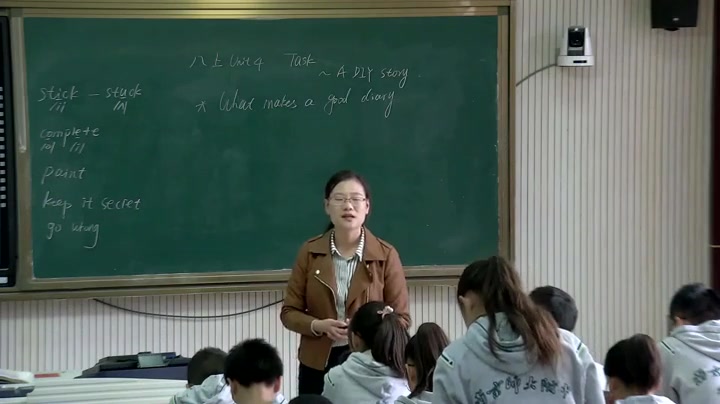 八上 Unit 4 Task
~ A DIY story.
* What makes a good diary
stick – stuck
/ɪ/ /ʌ/
complete
/ə/ /iː/
paint
keep it secret
go wrong